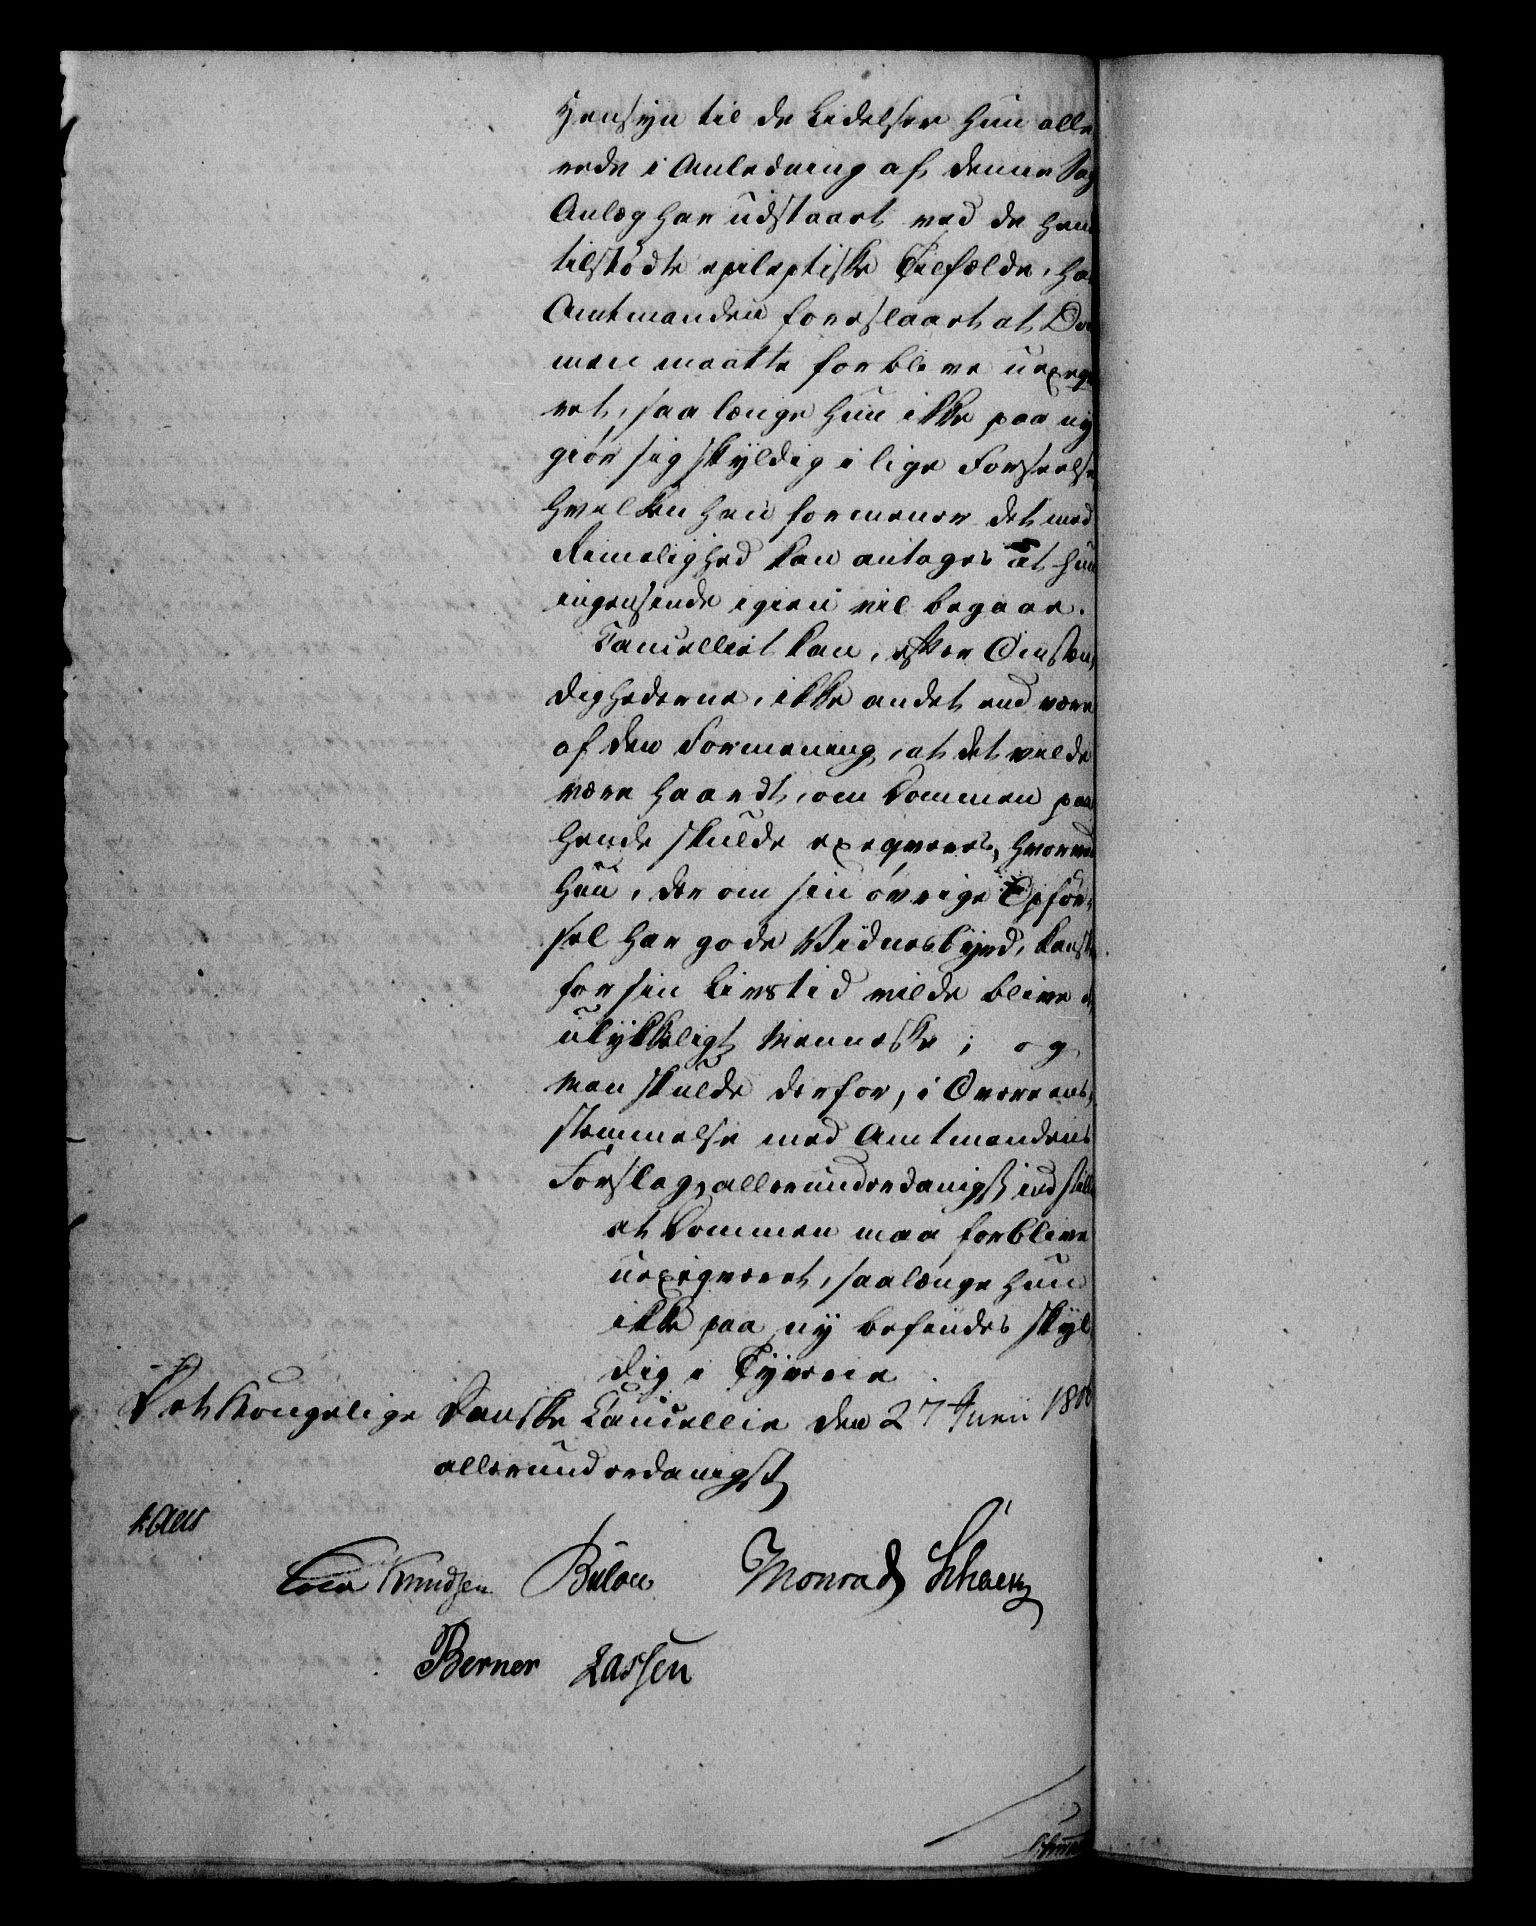 Hensyn til de Lidelser hun alle
rede i Anledning af denne Sag
Anlæg har udstaaet ved de hen
tilstødte epileptiske Tilfælde, ha
Amtmanden foreslaaet at Do
men maatte forblive uexeqve
ret, saalænge hun ikke paa ny
giør sig skyldig i lige Forseelse
hvilken han formener det med
Rimelighed kan antages at hun
ingensinde igien vil begaae.
Cancelliet kan, efter Omstæn
dighederne, ikke andet end være
af den Formening, at det vilde
være haardt, om Dommen paa
hende skulde exeqveres, hvorved
hun, der om sin øvrige Opfør
sel har gode Vidnesbyrd, kanske
for sin Livstid vilde blive et
ulykkeligt Menneske; og
man skulde derfor, i Overeens
stemmelse med Amtmandens
Forslag, allerunderdanigst indstille
at Dommen maa forblive
uexeqveret, saalænge hun
ikke paa ny befindes skyl
dig i Tyverie.
Det Kongelige Danske Cancellie den 27 Junii 180
allerunderdanigst
Kaas
Cold Knudsen Bülow Monrad Schack
Berner Lassen